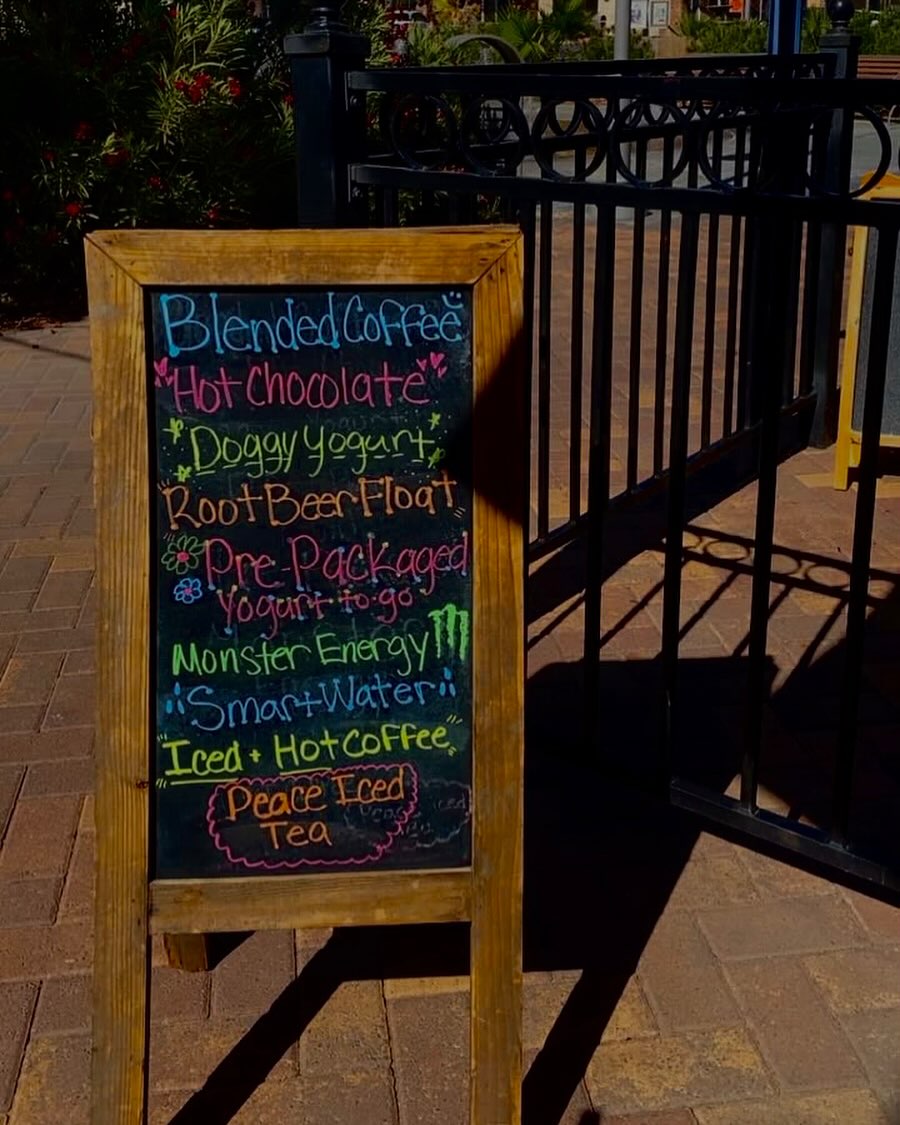 Blended Coffee
"Hot Chocolate"
Doggy Yogurt
"Root Beer Float"
Pre-Packaged
Yogurt to go
Monster Energy
"Smart Water"
"Iced + Hot Coffee"
Peace Iced
Tea